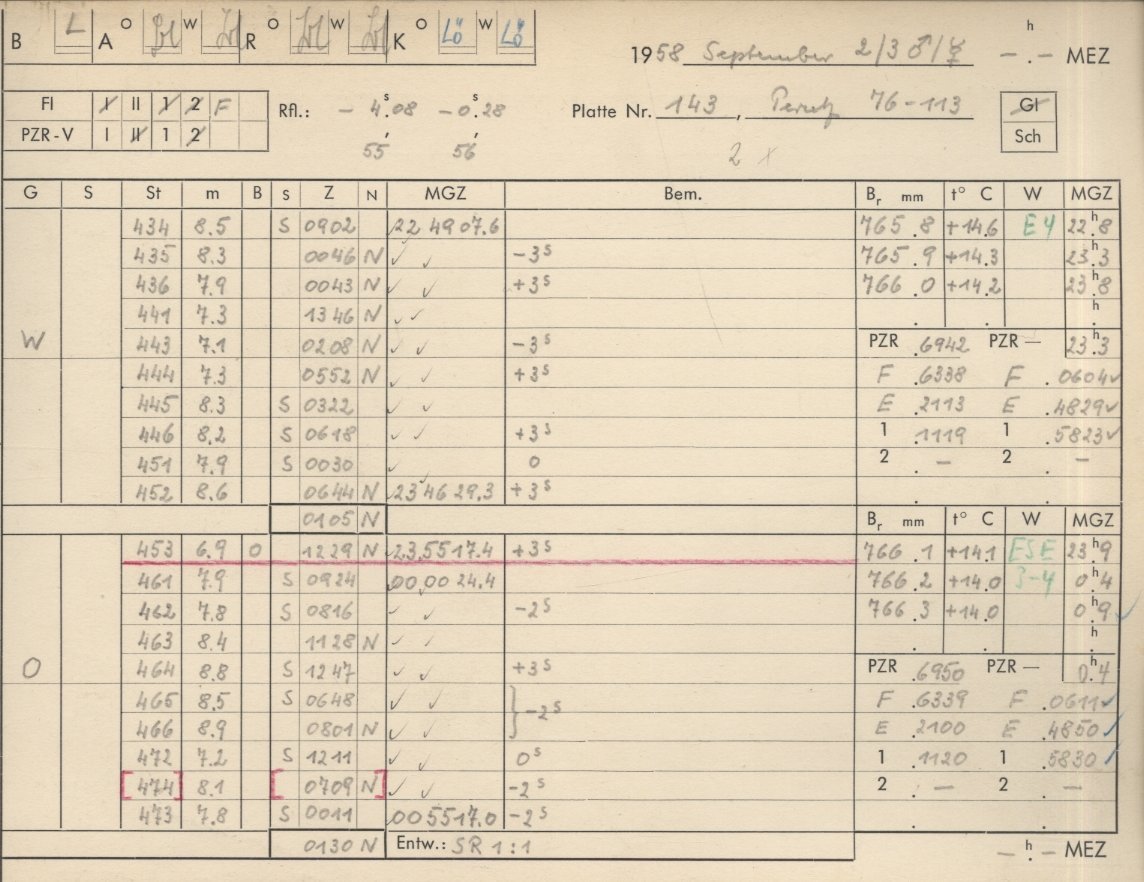 B L A O W R O W K O Lö W Lö
1958 September 2/3 ♂/☿ – h . – MEZ
FI I II 1 2 F Rfl.: – 4s.08 – 0s.28 Platte Nr. 143, 76-113 GI
PZR-V I II 1 2 55' 56' 2 x Sch
G S St m B S Z N MGZ Bem. Br mm t° C W MGZ
434 8.5 S 0902 22 49 07.6 765.8 +14.6 E4 22h.8
435 8.3 0046 N ✓ ✓ –3s 765.9 +14.3 23.3
436 7.9 0043 N ✓ ✓ +3s 766.0 +14.2 23h.8
441 7.3 1346 N ✓ ✓ . . h.
W 443 7.1 0208 N ✓ ✓ –3s PZR .6942 PZR — 23h.3
444 7.3 0552 N ✓ ✓ +3s F .6338 F .0604✓
445 8.3 S 0322 ✓ ✓ E .2113 E .4829✓
446 8.2 S 0618 ✓ ✓ +3s 1 .1119 1 .5823✓
451 7.9 S 0030 ✓ 0 2 . – 2 . –
452 8.6 0644 N 23 46 29.3 +3s . .
0105 N Br mm t° C W MGZ
453 6.9 0 1229 N 23 55 17.4 +3s 766.1 +14.1 ESE 23h.9
461 7.9 S 0924 00 00 24.4 766.2 +14.0 3-4 0h.4
462 7.8 S 0816 ✓ ✓ –2s 766.3 +14.0 0h.9 ✓
463 8.4 1128 N ✓ ✓ . . h.
O 464 8.8 S 1247 ✓ ✓ +3s PZR .6950 PZR — 0h.4
465 8.5 S 0648 ✓ ✓ } –2s F .6339 F .0611✓
466 8.9 0801 N ✓ ✓ E .2100 E .4850✓
472 7.2 S 1211 ✓ ✓ 0s 1 .1120 1 .5830✓
[474] 8.1 [0709 N] ✓ ✓ –2s 2 . – 2 . –
473 7.8 S 0011 00 55 17.0 –2s . .
0130 N Entw.: SR 1:1 – h . – MEZ